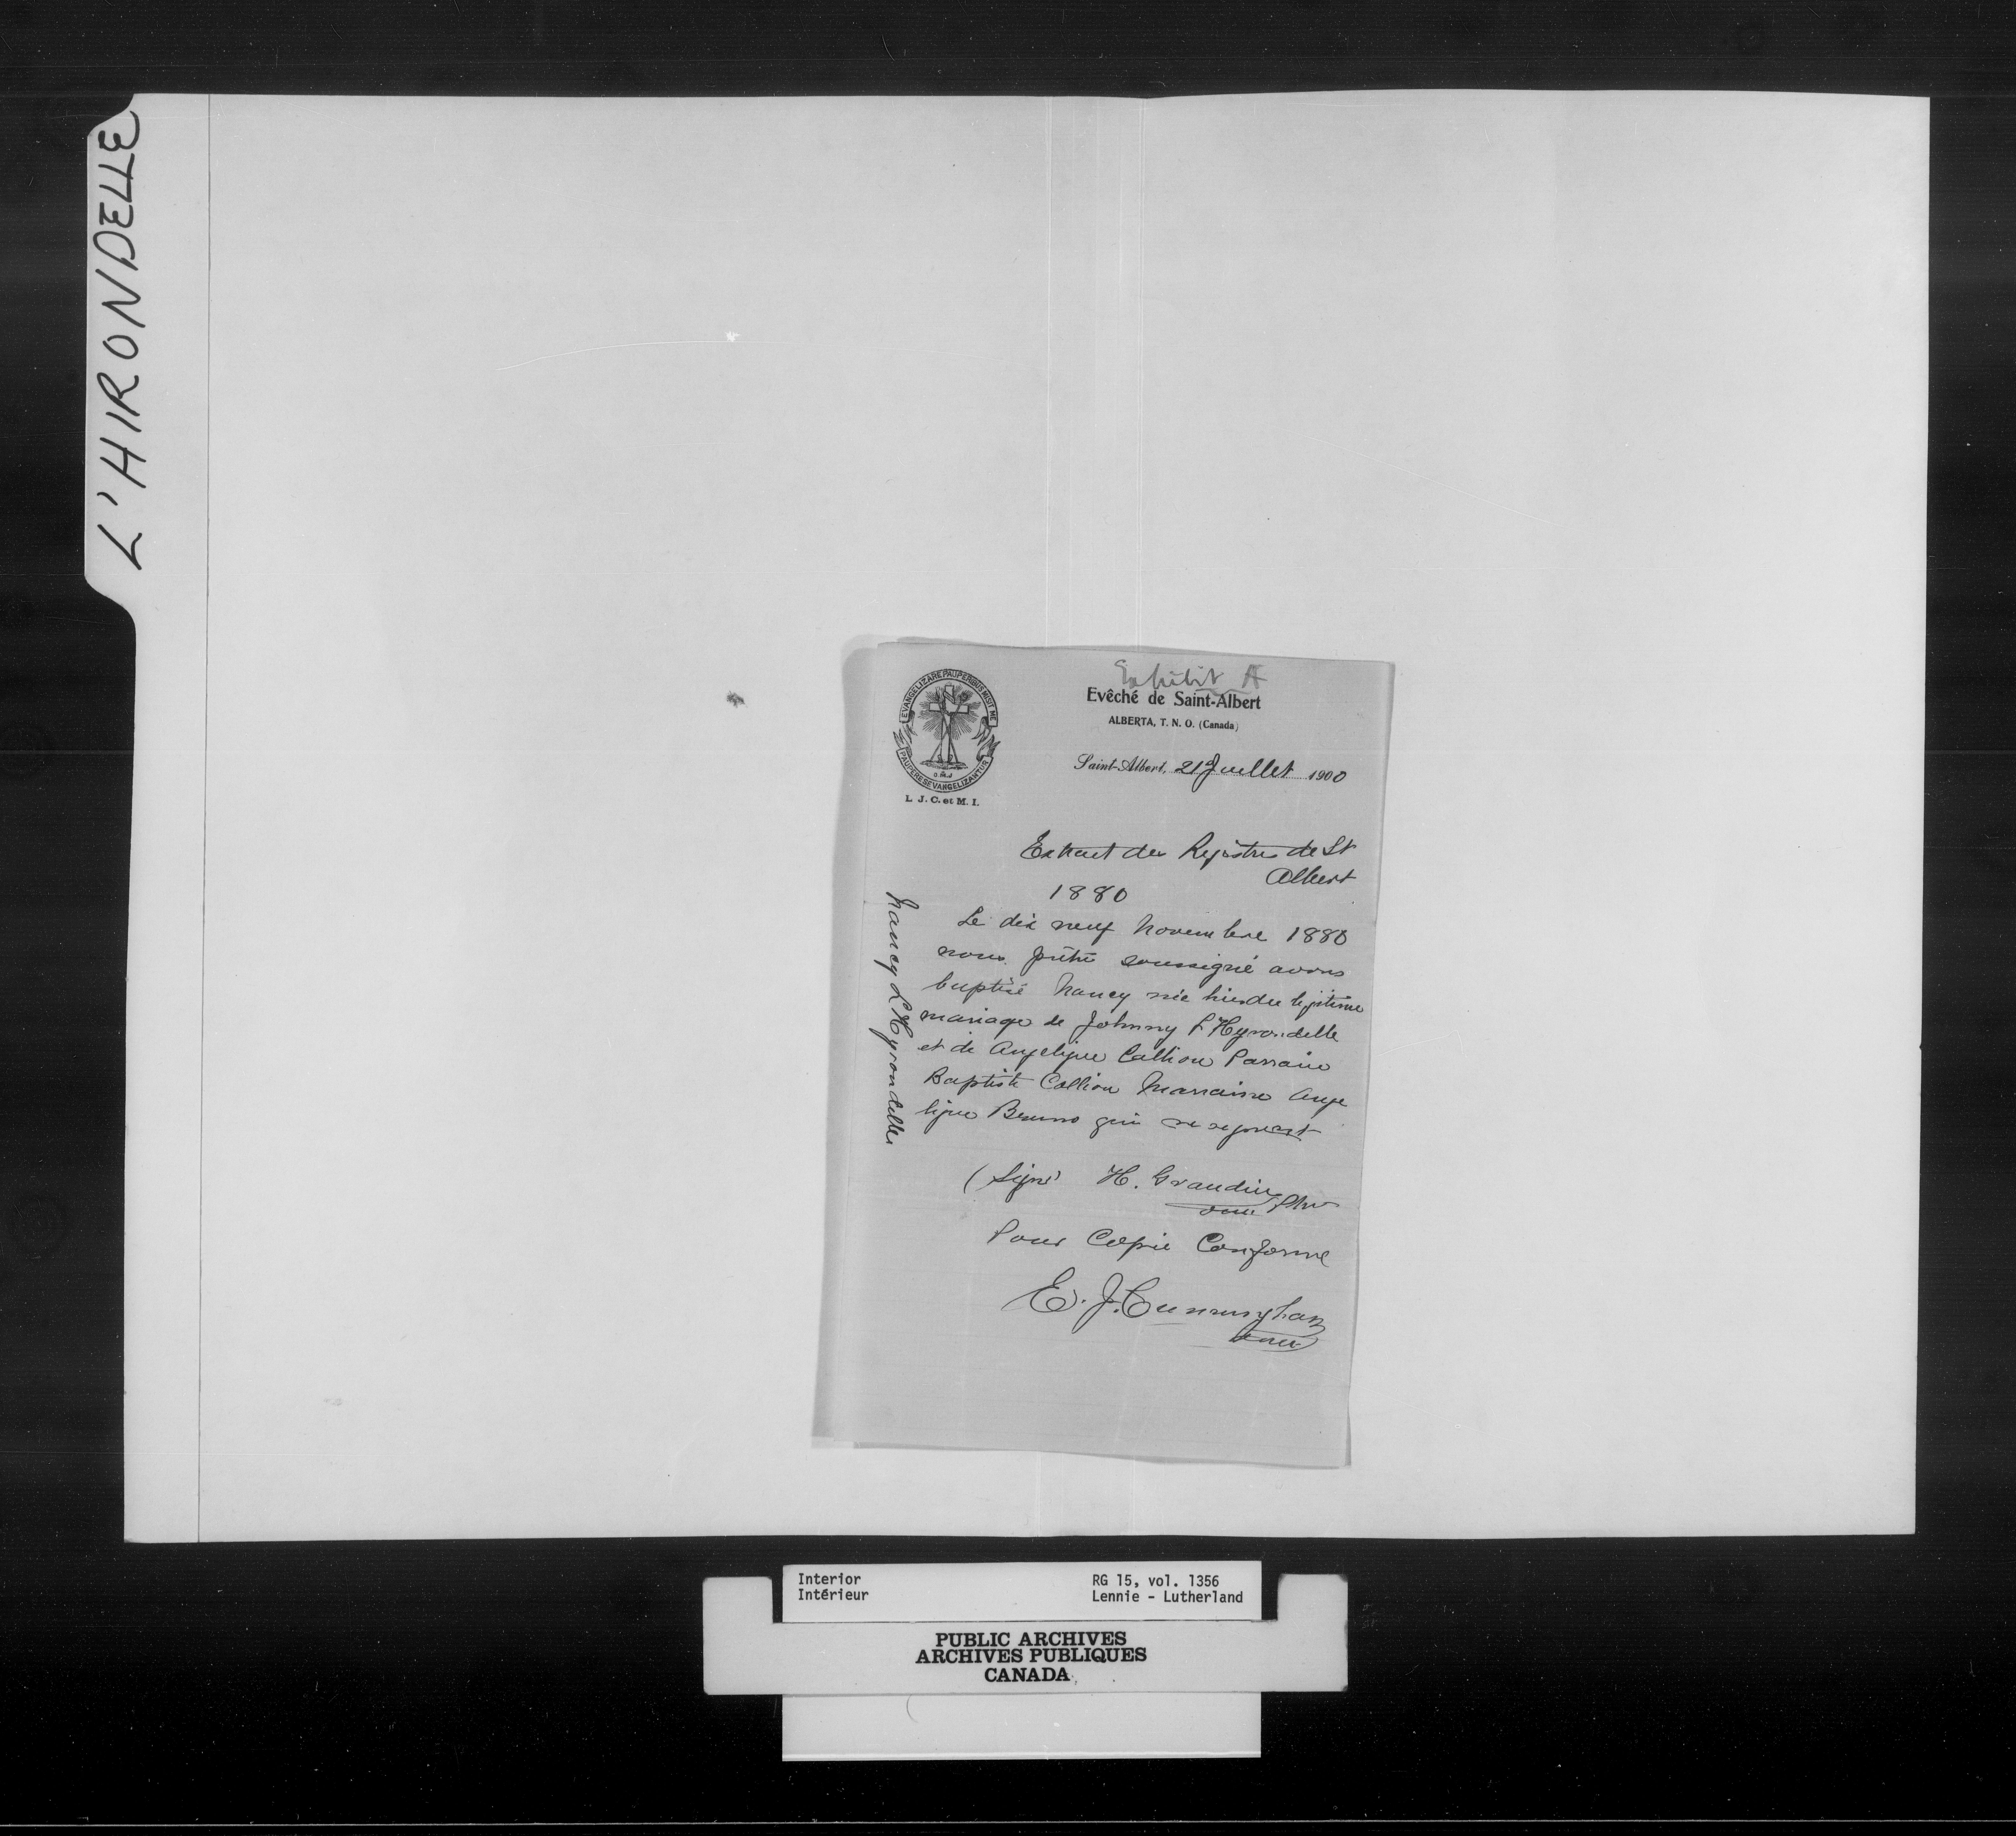 L'HIRONDELLE
Exhibit A
EVANGELIZARE PAUPERIBUS MISIT ME
PAUPERES EVANGELIZANTUR
O.M.I
L. J. C. et M. I.
Evêché de Saint-Albert
ALBERTA, T. N. O. (Canada)
Saint-Albert, 21 Juillet 1900
Extrait des Registres de St
Albert
1880
Nancy L'Hyrondelle
Le dix neuf Novembre 1880
nous prêtre soussigné avons
baptisé Nancy née hier du légitime
mariage de Johnny L'Hyrondelle
et de Angelique Calliou Parrain
Baptiste Callion Marraine Ange
lique Bruno qui ne signent
(Signé H. Grandin
omi Ptre
Pour Copie Conforme
E. J. Cunningham
omi
Interior
Intérieur
RG 15, vol. 1356
Lennie - Lutherland
PUBLIC ARCHIVES
ARCHIVES PUBLIQUES
CANADA